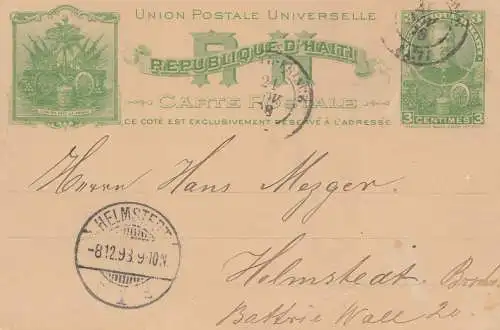 UNION POSTALE UNIVERSELLE
R H
REPUBLIQUE D'HAITI
CARTE POSTALE
CE COTÉ EST EXCLUSIVEMENT RÉSERVÉ À L'ADRESSE
3 CENTIMES 3
Herrn Hans Mezger.
HELMSTEDT
-8.12.98.9-10N.
Helmstedt.
Battrie Wall 20.